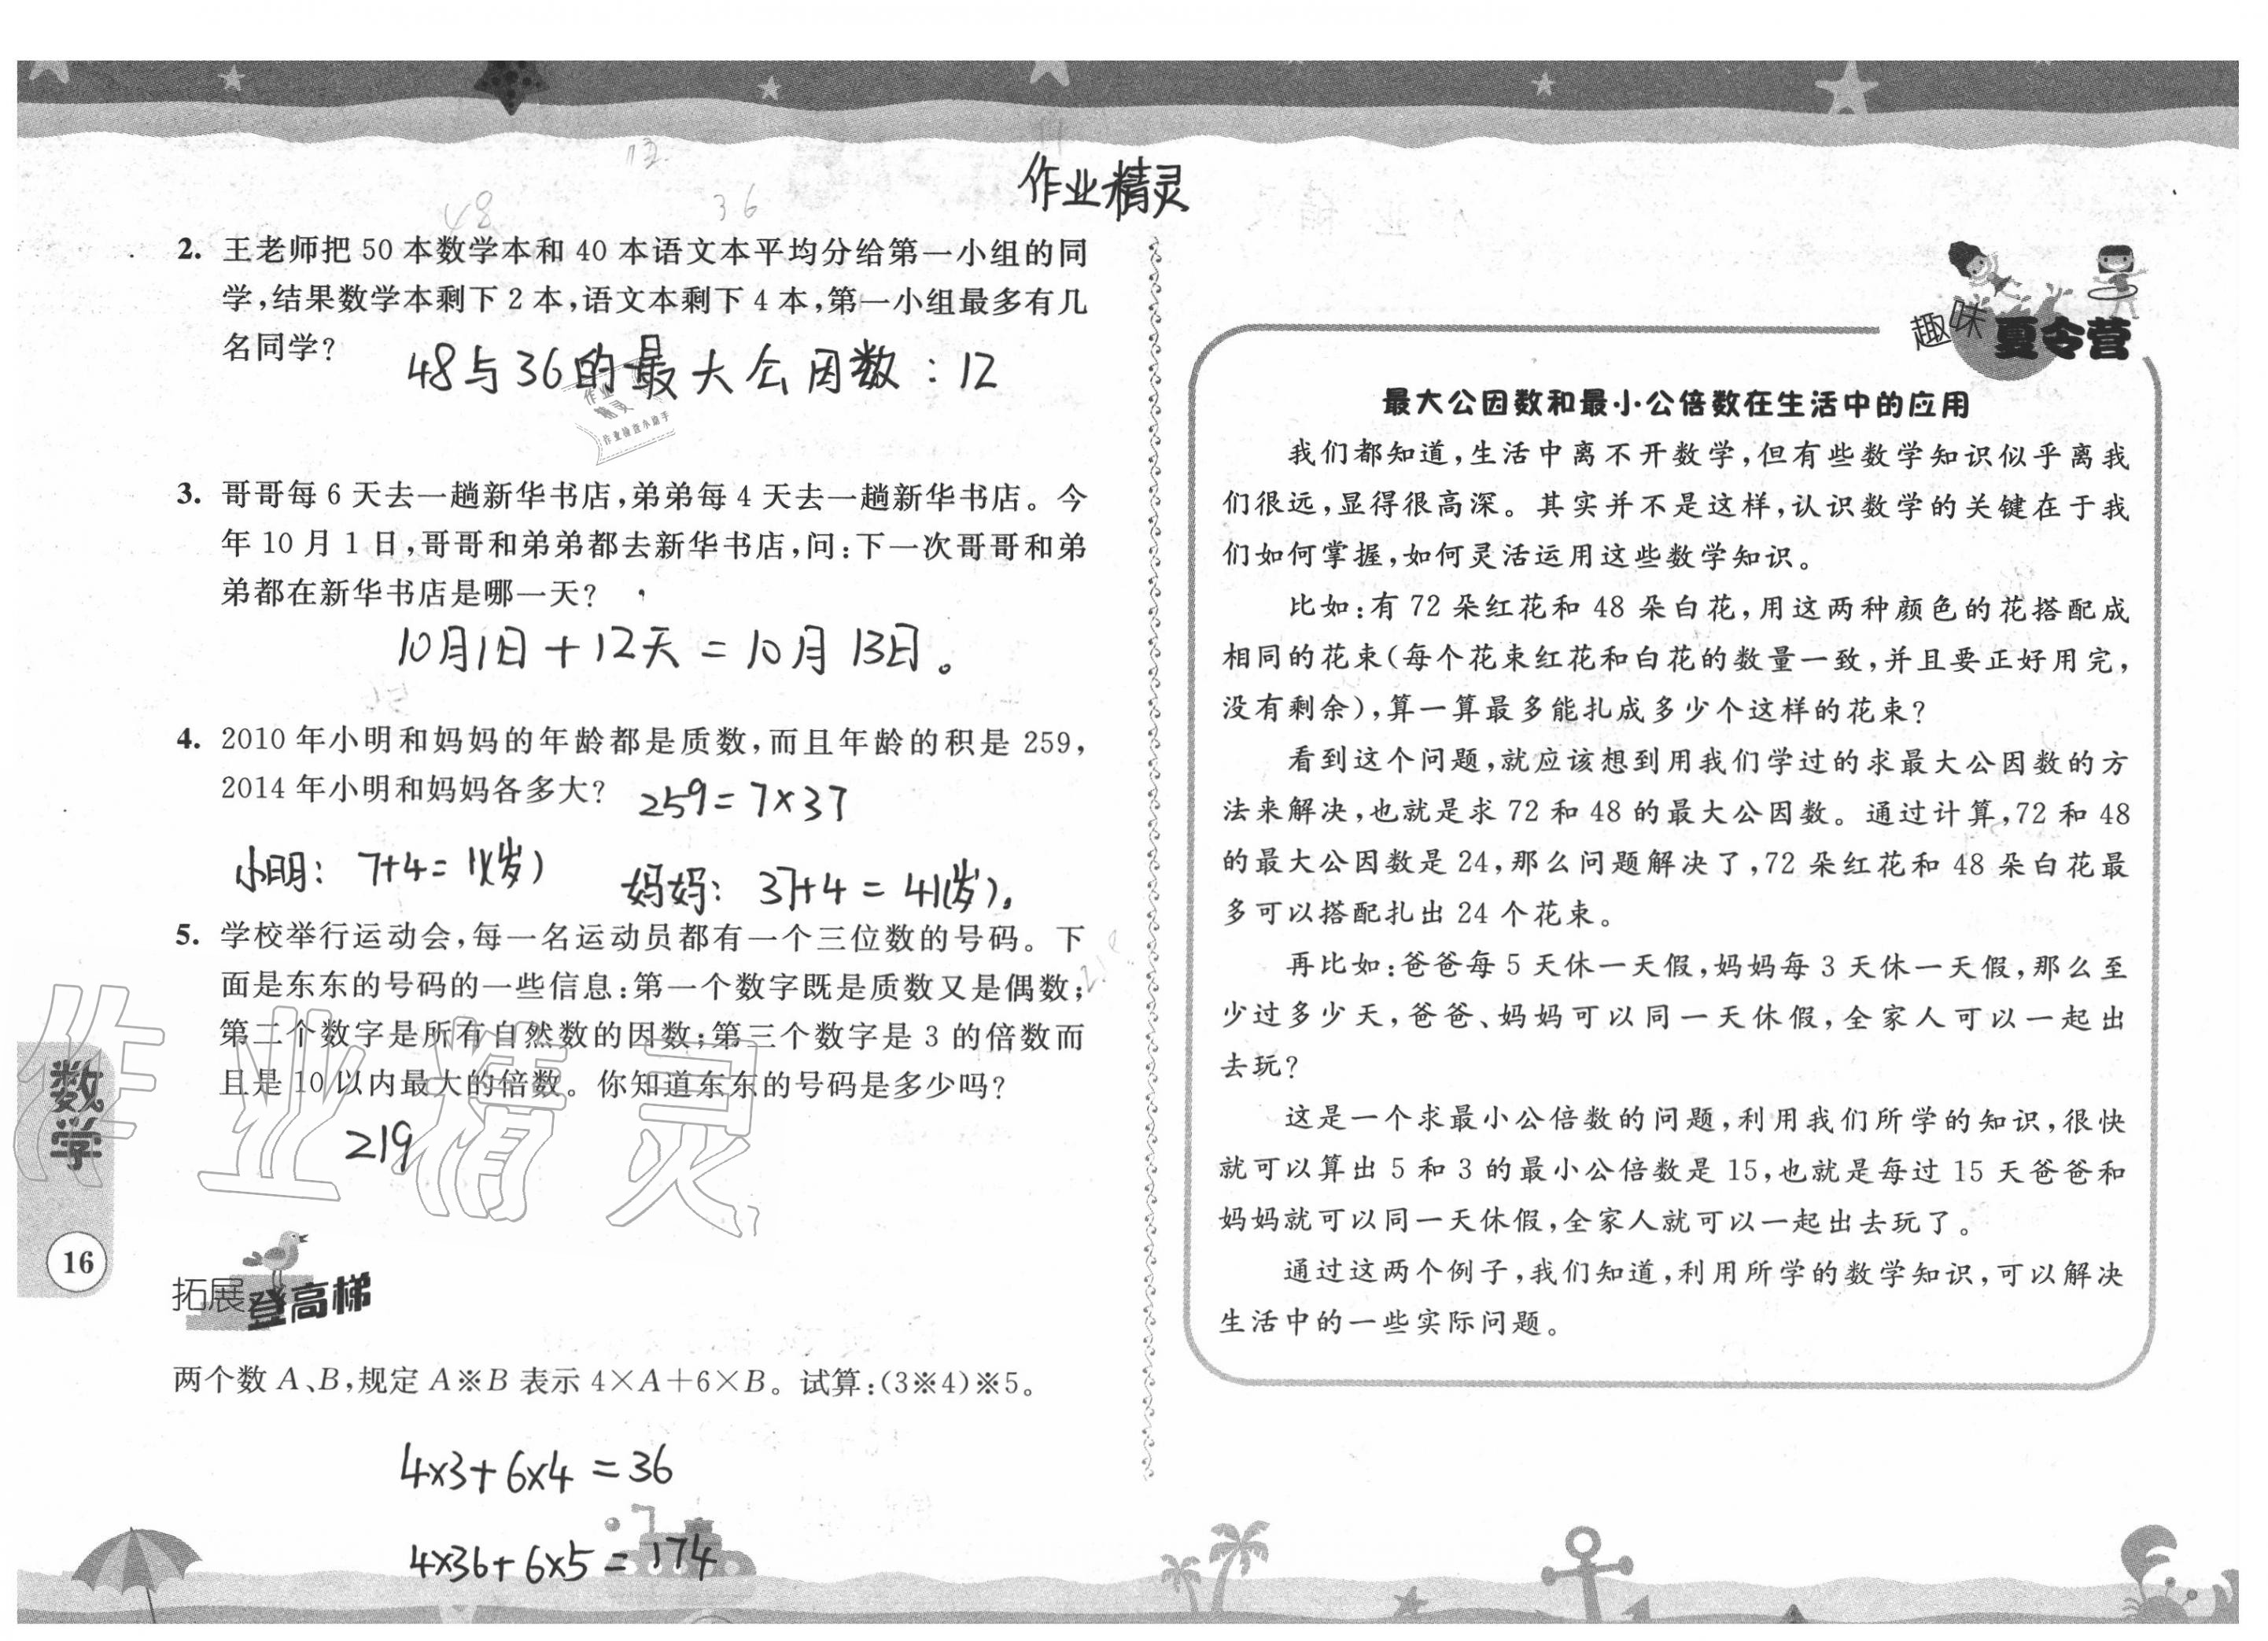 作业精灵
48
36
2. 王老师把 50 本数学本和 40 本语文本平均分给第一小组的同
学,结果数学本剩下 2 本,语文本剩下 4 本,第一小组最多有几
名同学?
48与36的最大公因数:12
3. 哥哥每 6 天去一趟新华书店,弟弟每 4 天去一趟新华书店。今
年 10 月 1 日,哥哥和弟弟都去新华书店,问:下一次哥哥和弟
弟都在新华书店是哪一天?
10月1日+12天=10月13日。
4. 2010 年小明和妈妈的年龄都是质数,而且年龄的积是 259,
2014 年小明和妈妈各多大?
259=7×37
小明: 7+4=11(岁)
妈妈: 37+4=41(岁)。
5. 学校举行运动会,每一名运动员都有一个三位数的号码。下
面是东东的号码的一些信息:第一个数字既是质数又是偶数;
第二个数字是所有自然数的因数;第三个数字是 3 的倍数而
且是 10 以内最大的倍数。你知道东东的号码是多少吗?
219
作业精灵
数学
16
拓展登高梯
两个数 A、B,规定 A※B 表示 4×A+6×B。试算:(3※4)※5。
4×3+6×4=36
4×36+6×5=174
趣味夏令营
最大公因数和最小公倍数在生活中的应用
我们都知道,生活中离不开数学,但有些数学知识似乎离我
们很远,显得很高深。其实并不是这样,认识数学的关键在于我
们如何掌握,如何灵活运用这些数学知识。
比如:有 72 朵红花和 48 朵白花,用这两种颜色的花搭配成
相同的花束(每个花束红花和白花的数量一致,并且要正好用完,
没有剩余),算一算最多能扎成多少个这样的花束?
看到这个问题,就应该想到用我们学过的求最大公因数的方
法来解决,也就是求 72 和 48 的最大公因数。通过计算,72 和 48
的最大公因数是 24,那么问题解决了,72 朵红花和 48 朵白花最
多可以搭配扎出 24 个花束。
再比如:爸爸每 5 天休一天假,妈妈每 3 天休一天假,那么至
少过多少天,爸爸、妈妈可以同一天休假,全家人可以一起出
去玩?
这是一个求最小公倍数的问题,利用我们所学的知识,很快
就可以算出 5 和 3 的最小公倍数是 15,也就是每过 15 天爸爸和
妈妈就可以同一天休假,全家人就可以一起出去玩了。
通过这两个例子,我们知道,利用所学的数学知识,可以解决
生活中的一些实际问题。